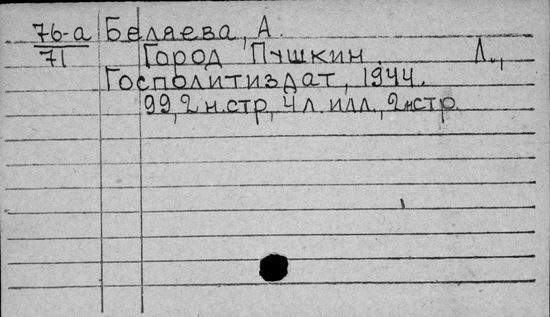 76-а Беляева, А.
71 Город Пушкин. Л.,
Госполитиздат, 1944.
99, 2 н.стр, 4 л. илл., 2нстр.